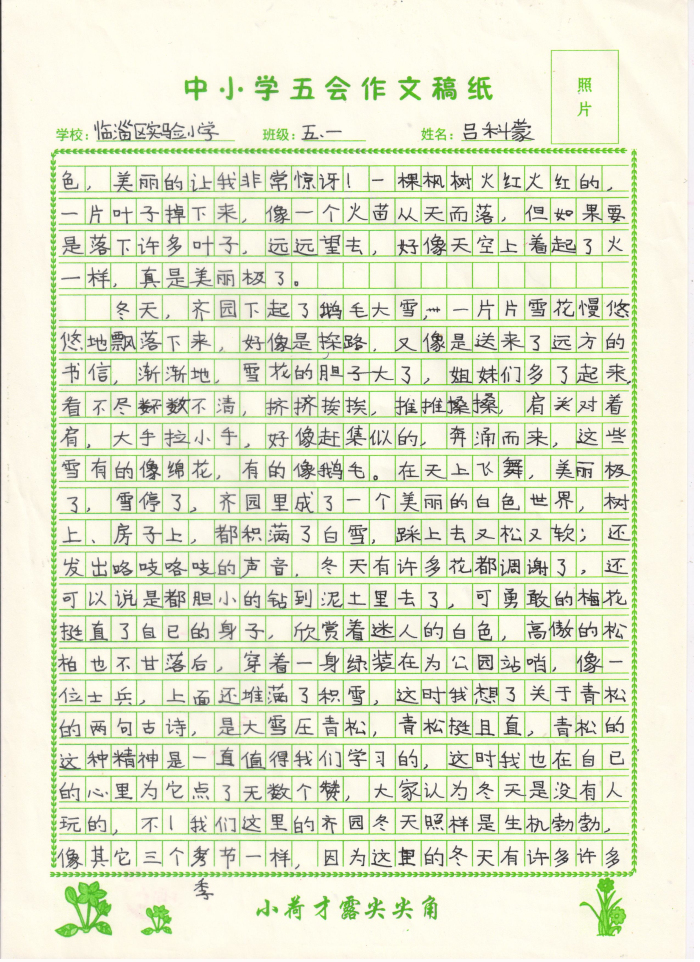 中小学五会作文稿纸
照片
学校：临淄区实验小学 班级：五、一 姓名：吕科蒙
色，美丽的让我非常惊讶！一棵枫树火红火红的，
一片叶子掉下来，像一个火苗从天而落，但如果要
是落下许多叶子，远远望去，好像天空上着起了火
一样，真是美丽极了。
冬天，齐园下起了鹅毛大雪，一片片雪花慢悠
悠地飘落下来，好像是探路，又像是送来了远方的
书信，渐渐地，雪花的胆子大了，姐妹们多了起来，
看不尽数不清，挤挤挨挨，推推搡搡，肩关对着
肩，大手拉小手，好像赶集似的，奔涌而来，这些
雪有的像绵花，有的像鹅毛。在天上飞舞，美丽极
了，雪停了，齐园里成了一个美丽的白色世界，树
上、房子上，都积满了白雪，踩上去又松又软；还
发出咯吱咯吱的声音，冬天有许多花都调谢了，还
可以说是都胆小的钻到泥土里去了，可勇敢的梅花
挺直了自已的身子，欣赏着迷人的白色，高傲的松
柏也不甘落后，穿着一身绿装在为公园站哨，像一
位士兵，上面还堆满了积雪，这时我想了关于青松
的两句古诗，是大雪压青松，青松挺且直，青松的
这种精神是一直值得我们学习的，这时我也在自已
的心里为它点了无数个赞，大家认为冬天是没有人
玩的，不！我们这里的齐园冬天照样是生机勃勃，
像其它三个季节一样，因为这里的冬天有许多许多
小荷才露尖尖角